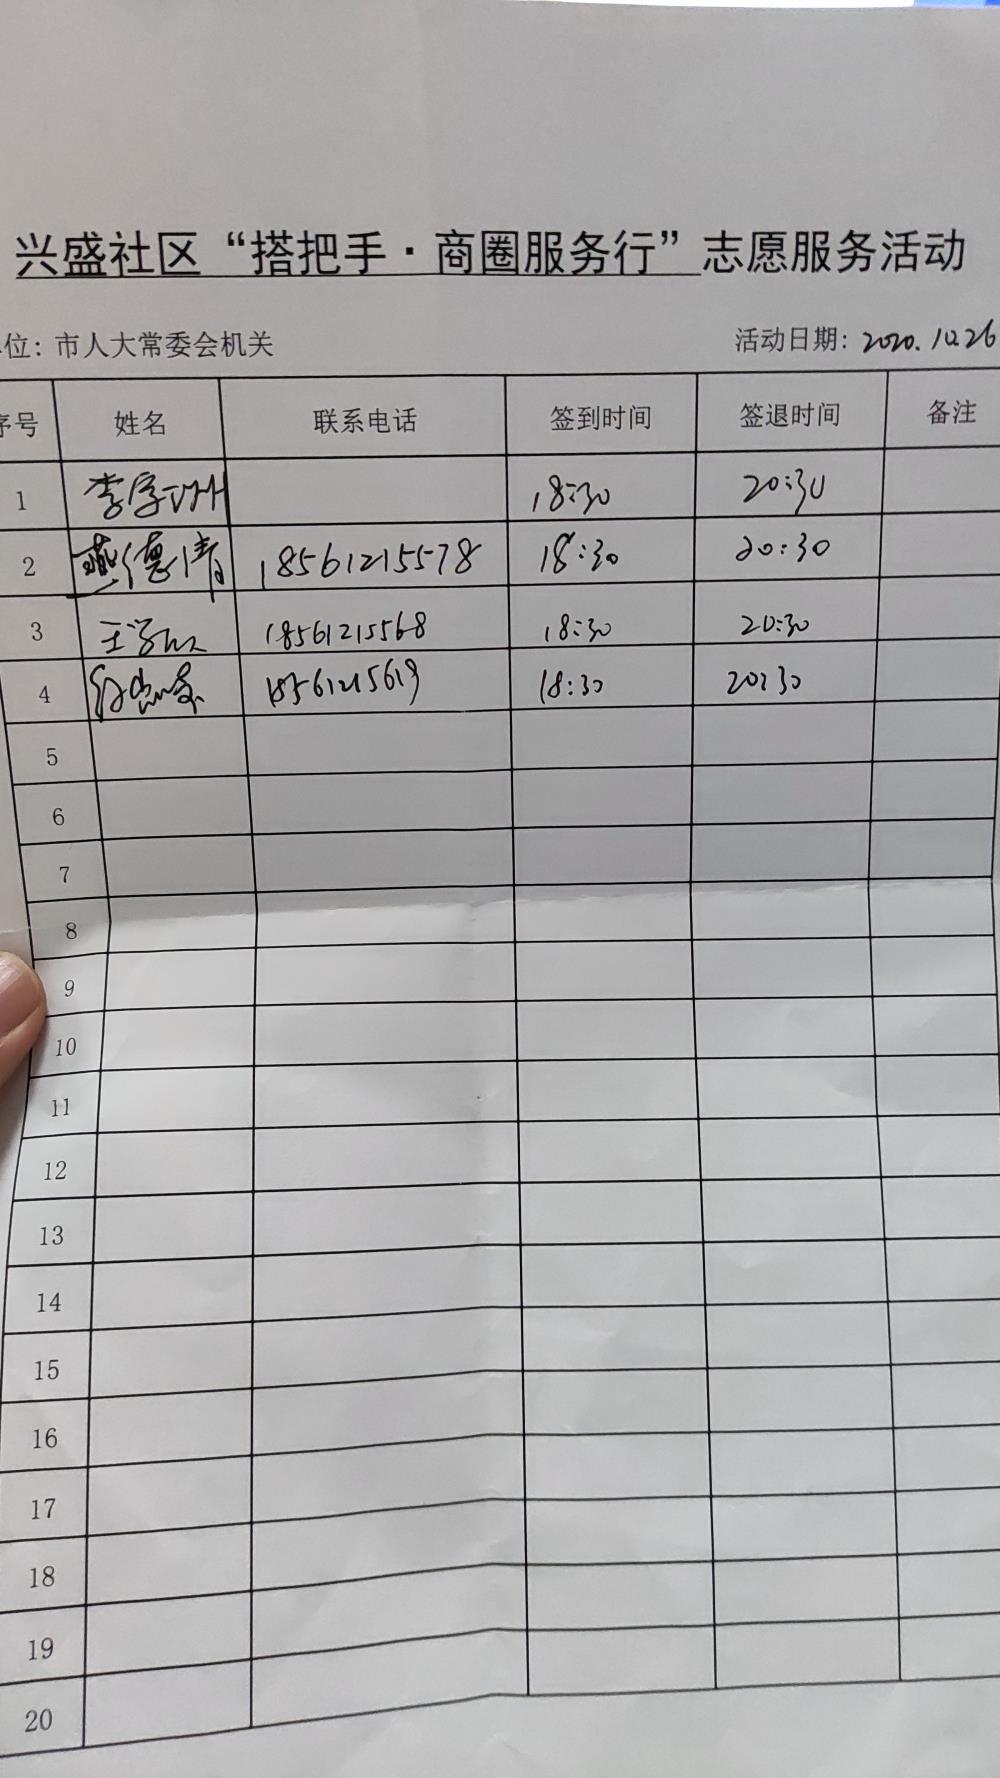 兴盛社区“搭把手·商圈服务行”志愿服务活动
位：市人大常委会机关 活动日期：2020.10.26
序号 姓名 联系电话 签到时间 签退时间 备注
1 李 18:30 20:30
2 燕德清 18561215578 18:30 20:30
3 王 18561215568 18:30 20:30
4 18561215619 18:30 20:30
5
6
7
8
9
10
11
12
13
14
15
16
17
18
19
20